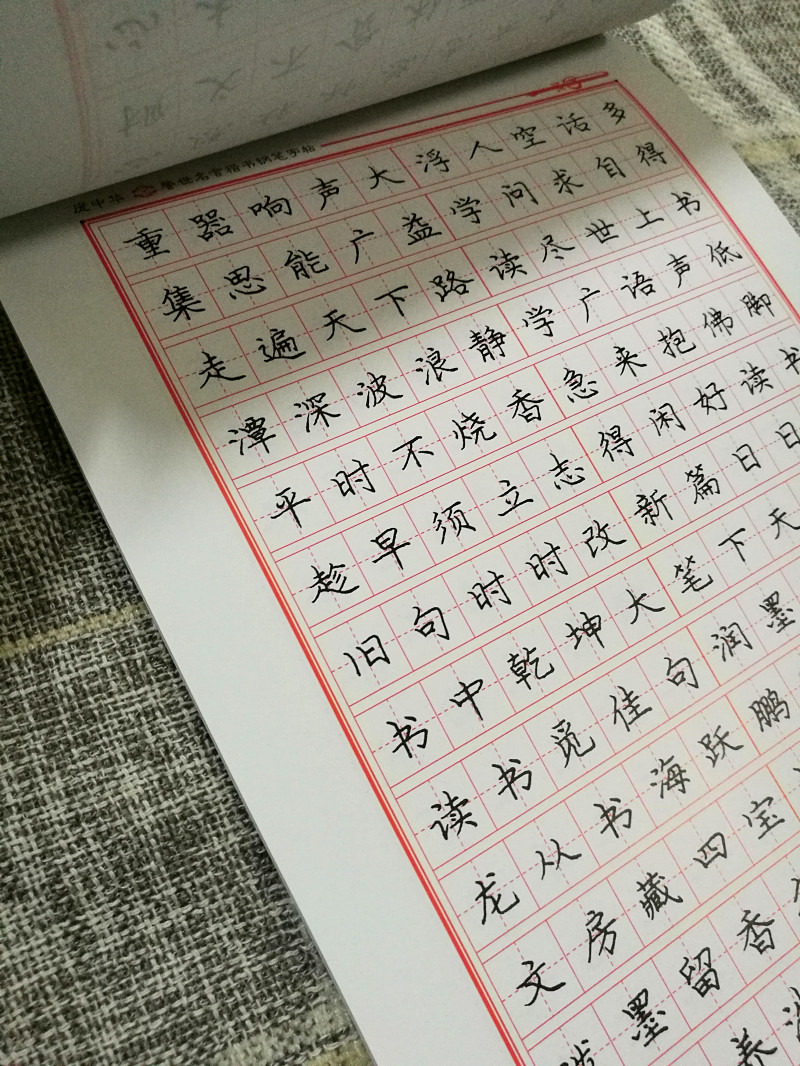 庞中华 警世名言楷书钢笔字帖
重器响声大浮人空话多
集思能广益学问求自得
走遍天下路读尽世上书
潭深波浪静学广语声低
平时不烧香急来抱佛脚
趁早须立志得闲好读书
旧句时时改新篇日日
书中乾坤大笔下天
读书觅佳句润墨
龙从书海跃鹏
文房藏四宝
墨留香
养